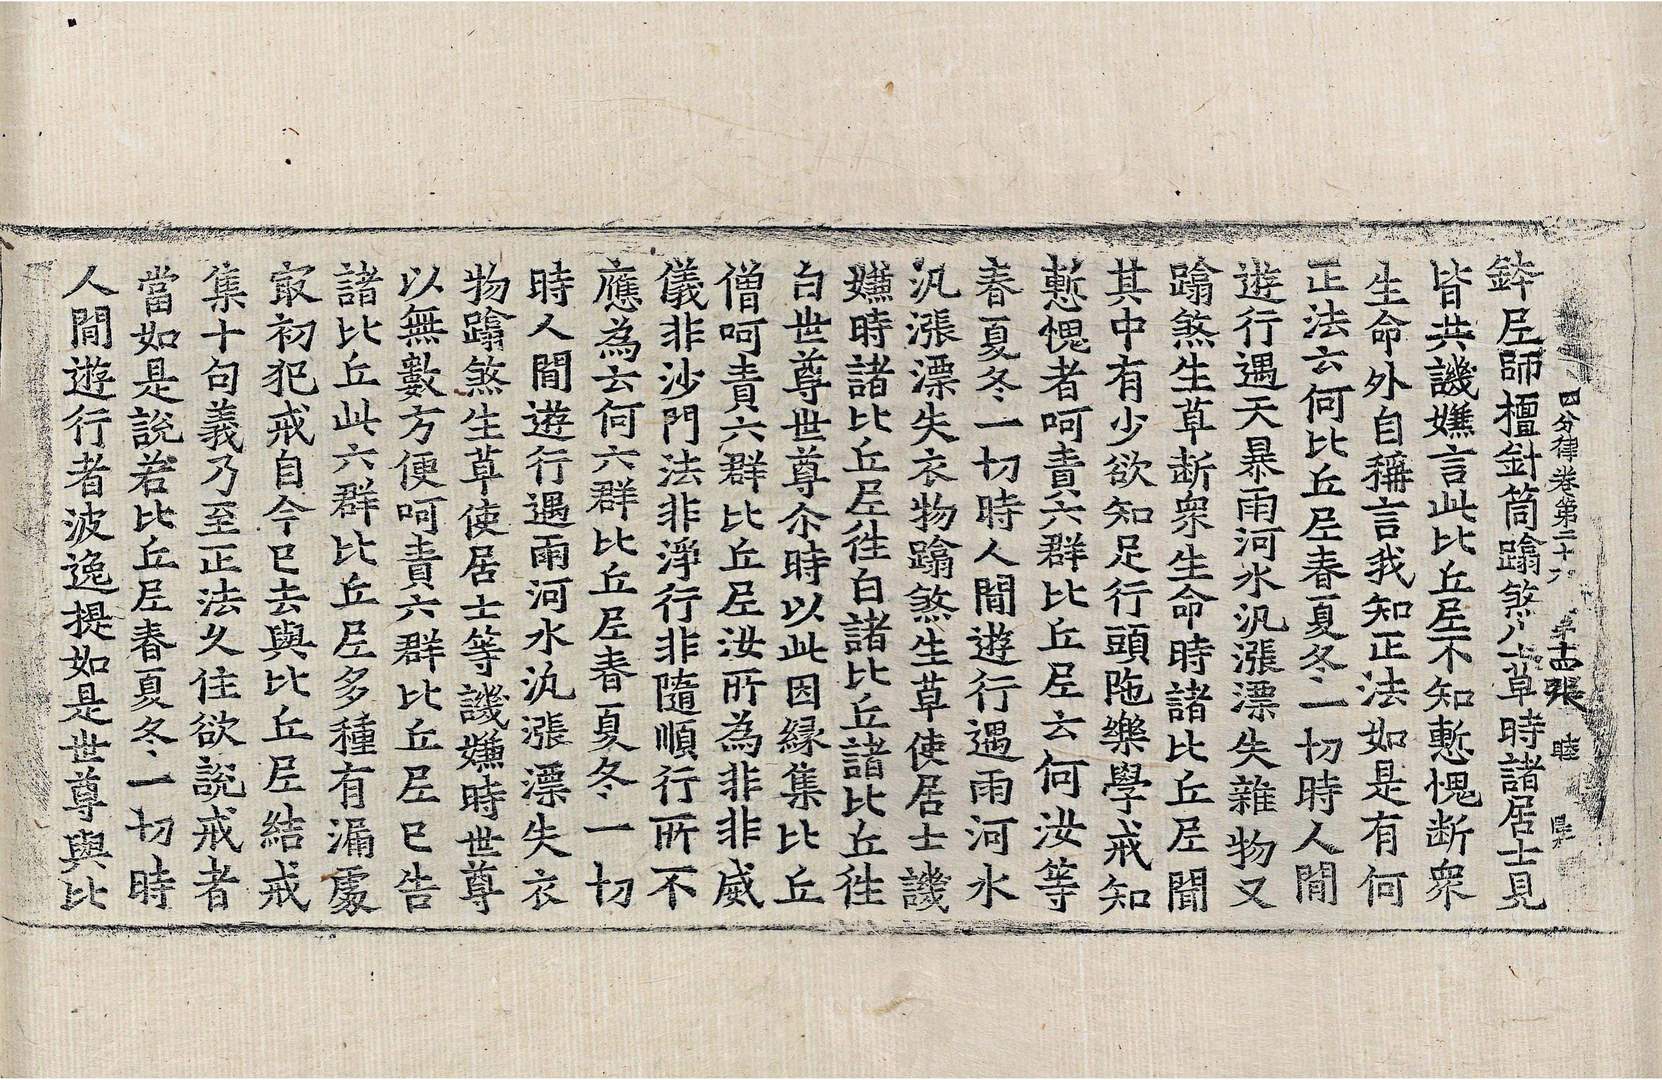 四分律卷第二十六 第十四張 睦
鉢尼師檀針筒蹋煞生草時諸居士見
皆共譏嫌言此比丘尼不知慙愧断衆
生命外自稱言我知正法如是有何
正法云何比丘尼春夏冬一切時人間
遊行遇天暴雨河水汎漲漂失雜物又
蹋煞生草断衆生命時諸比丘尼聞
其中有少欲知足行頭陁樂學戒知
慙愧者呵責六群比丘尼云何汝等
春夏冬一切時人間遊行遇雨河水
汎漲漂失衣物蹋煞生草使居士譏
嫌時諸比丘尼徃白諸比丘諸比丘徃
白世尊世尊尒時以此因縁集比丘
僧呵責六群比丘尼汝所為非非威
儀非沙門法非淨行非隨順行所不
應為云何六群比丘尼春夏冬一切
時人間遊行遇雨河水汎漲漂失衣
物蹋煞生草使居士等譏嫌時世尊
以無數方便呵責六群比丘尼已告
諸比丘此六群比丘尼多種有漏處
冣初犯戒自今已去與比丘尼結戒
集十句義乃至正法久住欲說戒者
當如是說若比丘尼春夏冬一切時
人間遊行者波逸提如是世尊與比